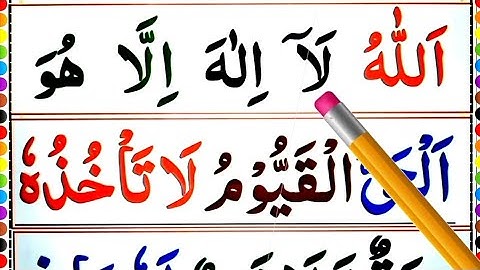 اَللّٰهُ لَآ اِلٰهَ اِلَّا هُوَ
اَلْحَیُّ الْقَیُّوْمُ لَا تَاْخُذُهٗ